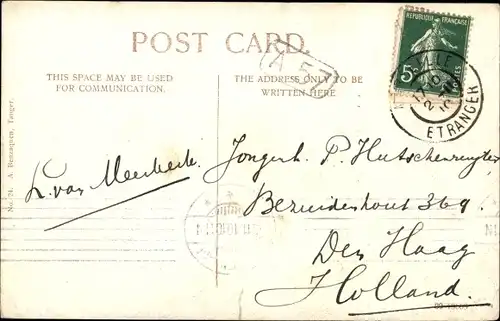 POST CARD.
A 57
THIS SPACE MAY BE USED
FOR COMMUNICATION.
THE ADDRESS ONLY TO BE
WRITTEN HERE
REPUBLIQUE FRANÇAISE
5
POSTES
ETRANGER
No. 74. A. Benzaquen, Tanger.
L. van Meerkerk.
Jongeh. P. Hutschenruyter
Bezuidenhout 369.
Den Haag
Holland.